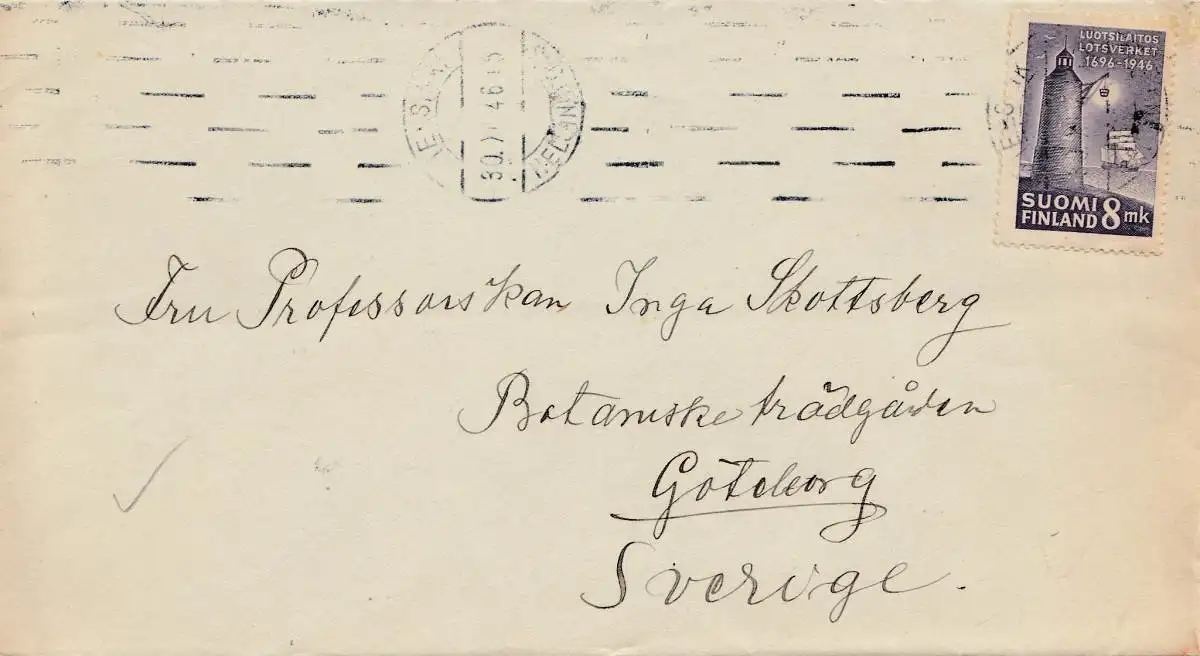 LUOTSILAITOS
LOTSVERKET
1696-1946
SUOMI
FINLAND 8 mk
Fru Professorskan Inga Skottsberg
Botaniske trädgården
Göteborg
Sverige.